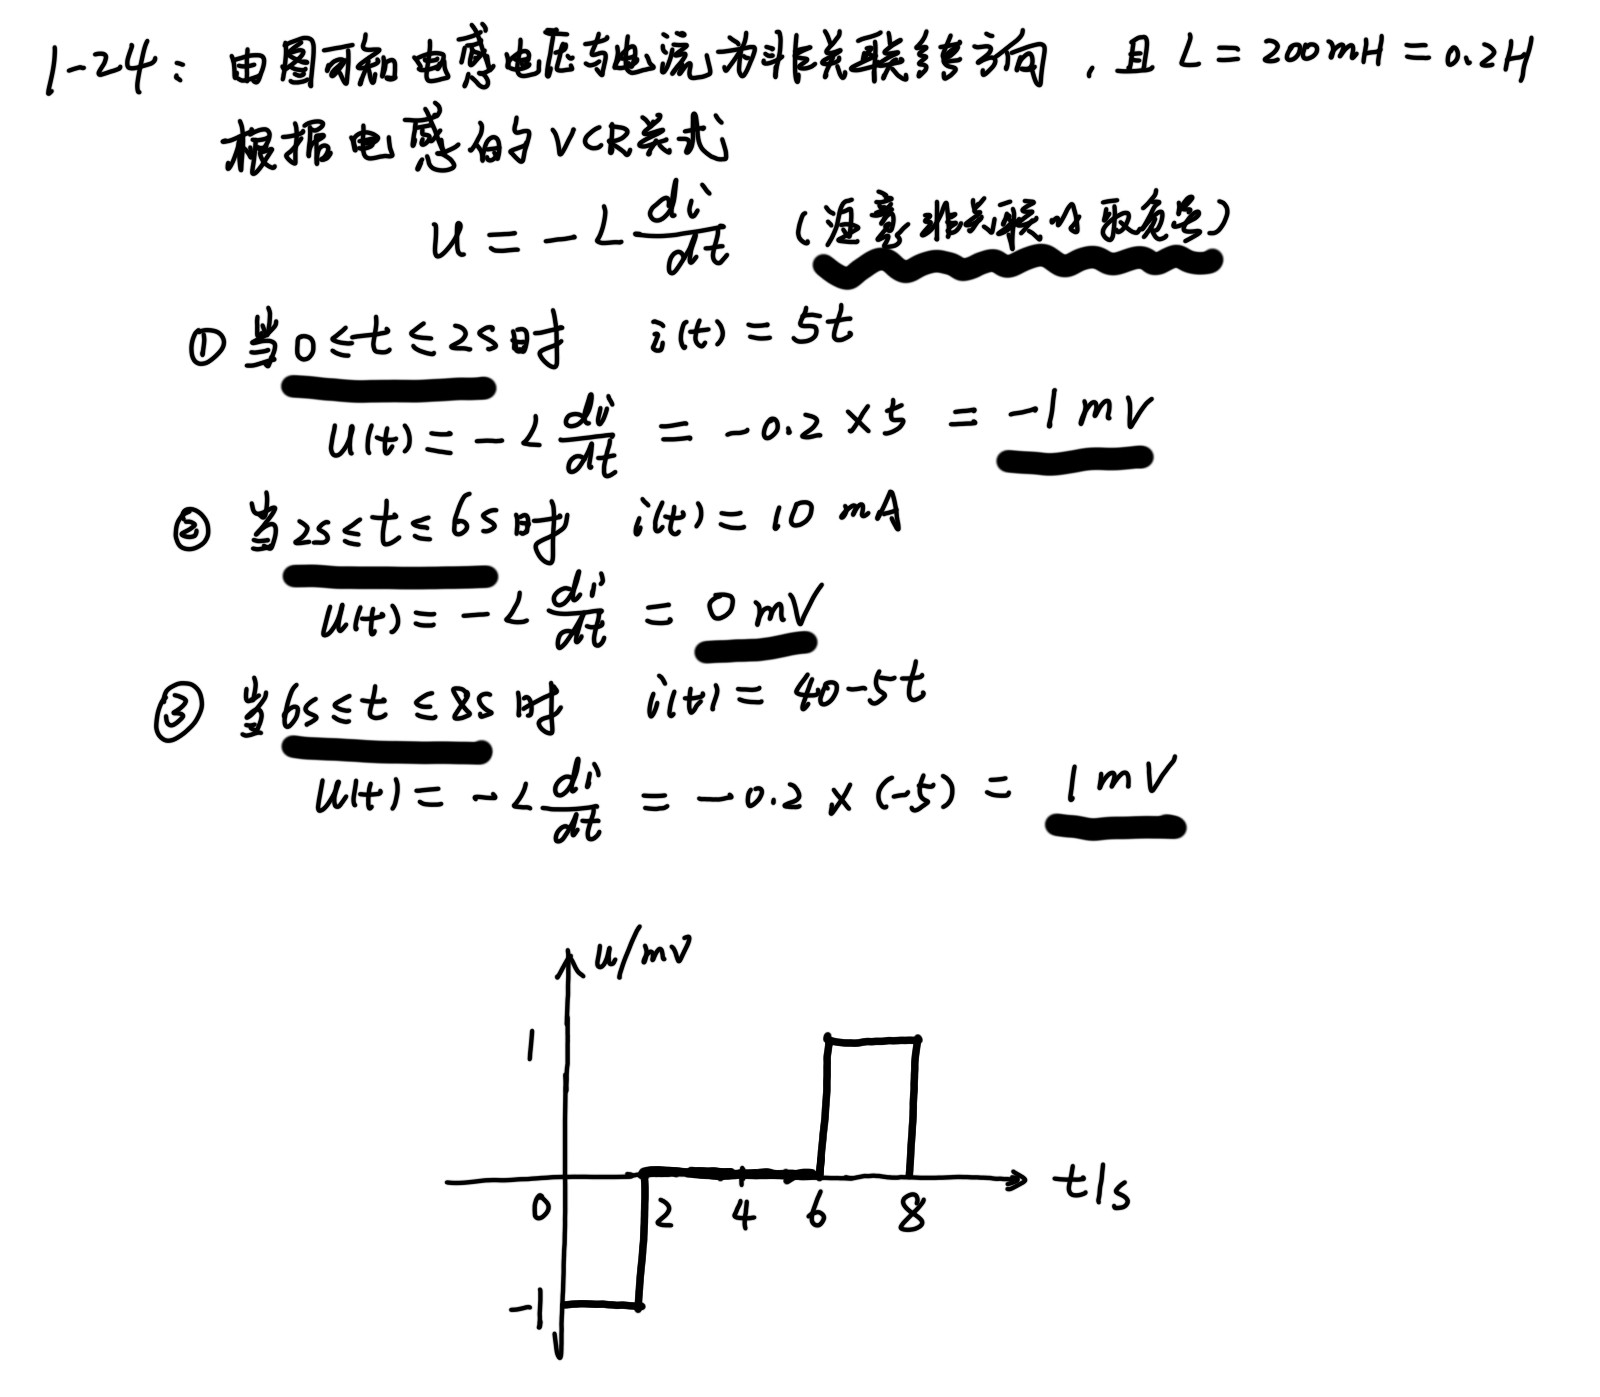 1-24: 由图可知电感电压与电流为非关联参方向，且 L = 200mH = 0.2H
根据电感的VCR关式
u = -L di/dt （注意非关联时取负号）
① 当 0 ≤ t ≤ 2s 时 i(t) = 5t
u(t) = -L di/dt = -0.2 × 5 = -1 mV
② 当 2s ≤ t ≤ 6s 时 i(t) = 10 mA
u(t) = -L di/dt = 0 mV
③ 当 6s ≤ t ≤ 8s 时 i(t) = 40-5t
u(t) = -L di/dt = -0.2 × (-5) = 1 mV
u/mV
1
0 2 4 6 8 t/s
-1